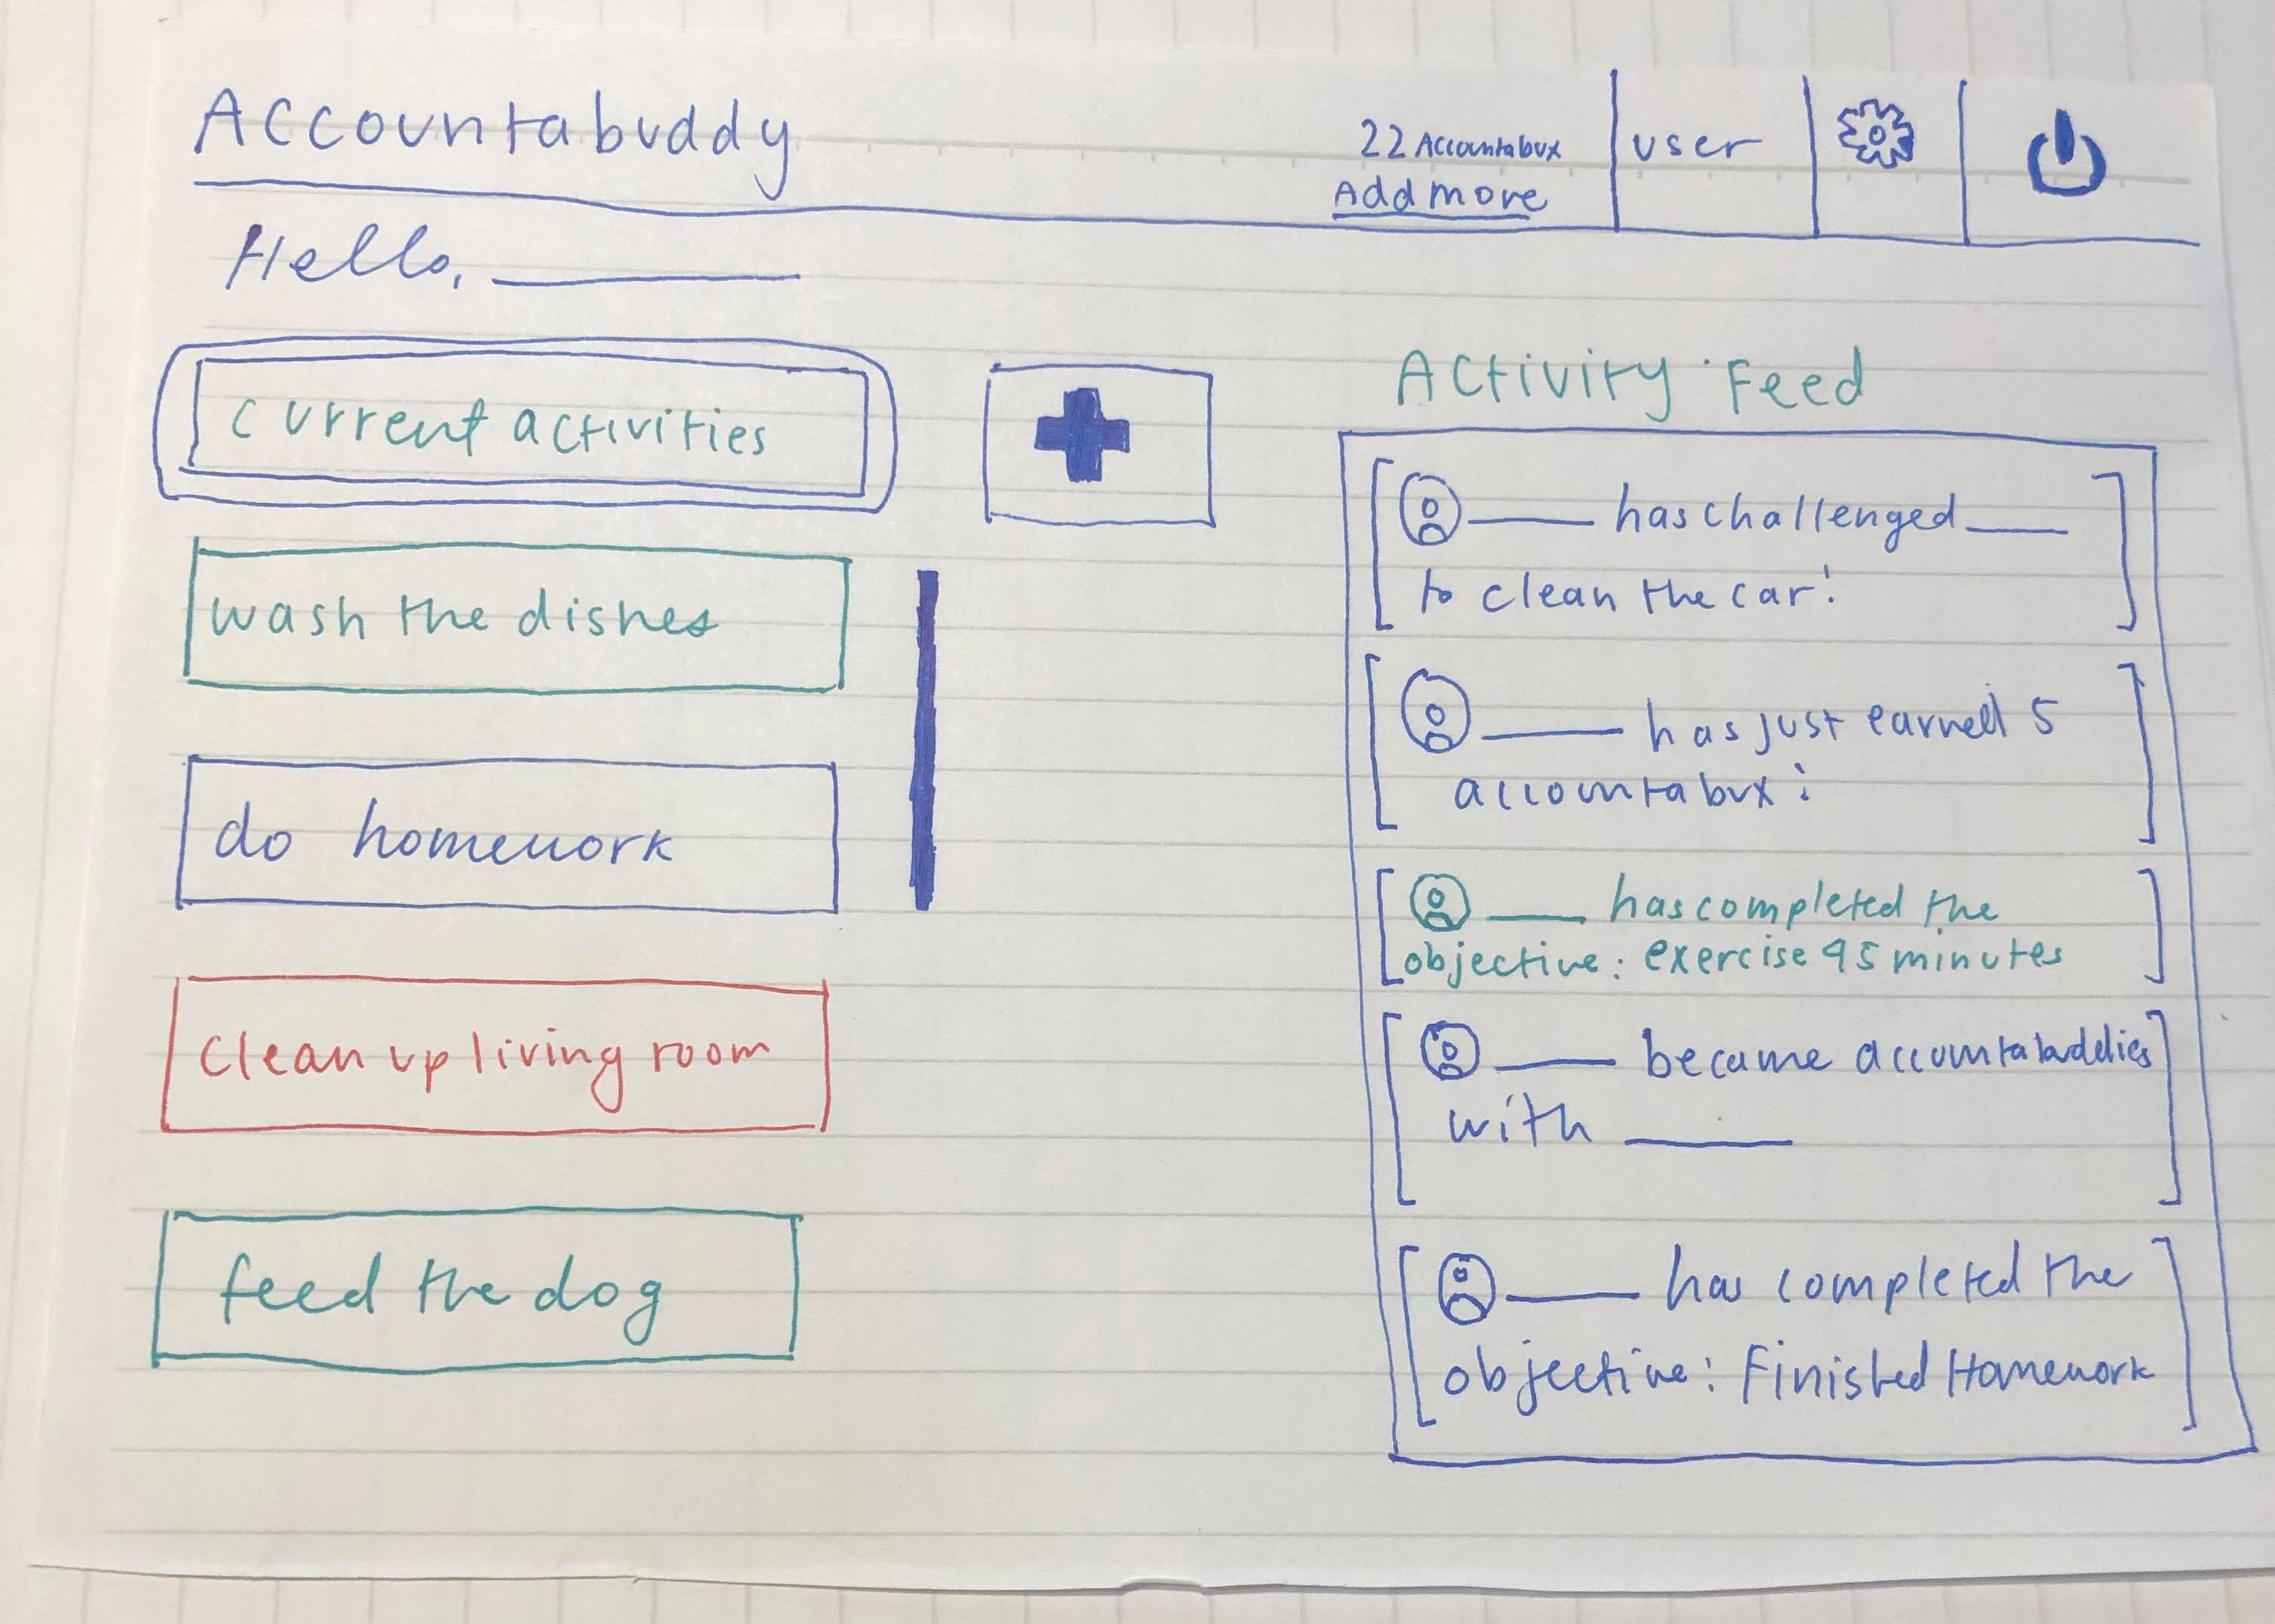 Accountabuddy
22 Accountabux
Add more
user
Hello, ______
current activities
wash the dishes
do homework
clean up living room
feed the dog
Activity Feed
____ has challenged ____
to clean the car!
____ has just earned 5
accountabux!
____ has completed the
objective: exercise 45 minutes
____ became accountabuddies
with ____
____ has completed the
objective: Finished Homework